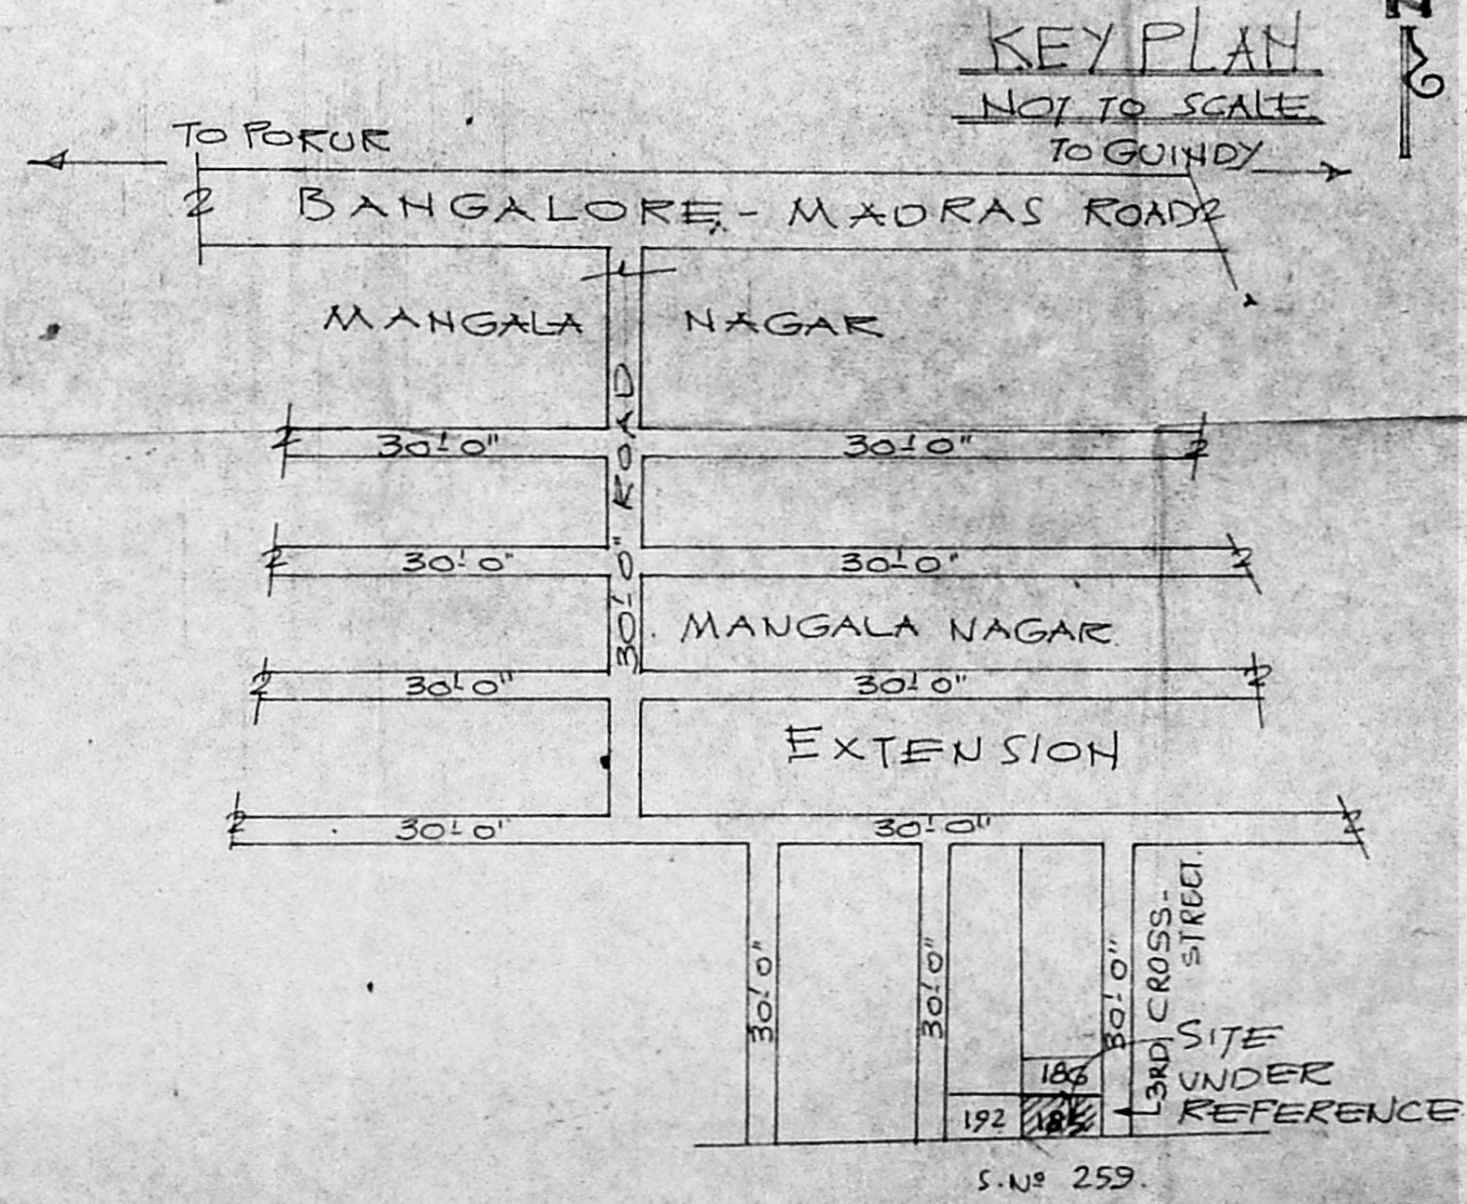 N
KEY PLAN
NOT TO SCALE
TO PORUR
TO GUINDY
BANGALORE - MADRAS ROAD
MANGALA NAGAR
30'-0" ROAD
30'-0" 30'-0"
30'-0" 30'-0"
MANGALA NAGAR
30'-0" 30'-0"
EXTENSION
30'-0" 30'-0"
30'-0"
30'-0"
30'-0"
3RD CROSS-
STREET.
SITE
UNDER
REFERENCE
186
192 185
S.Nº 259.